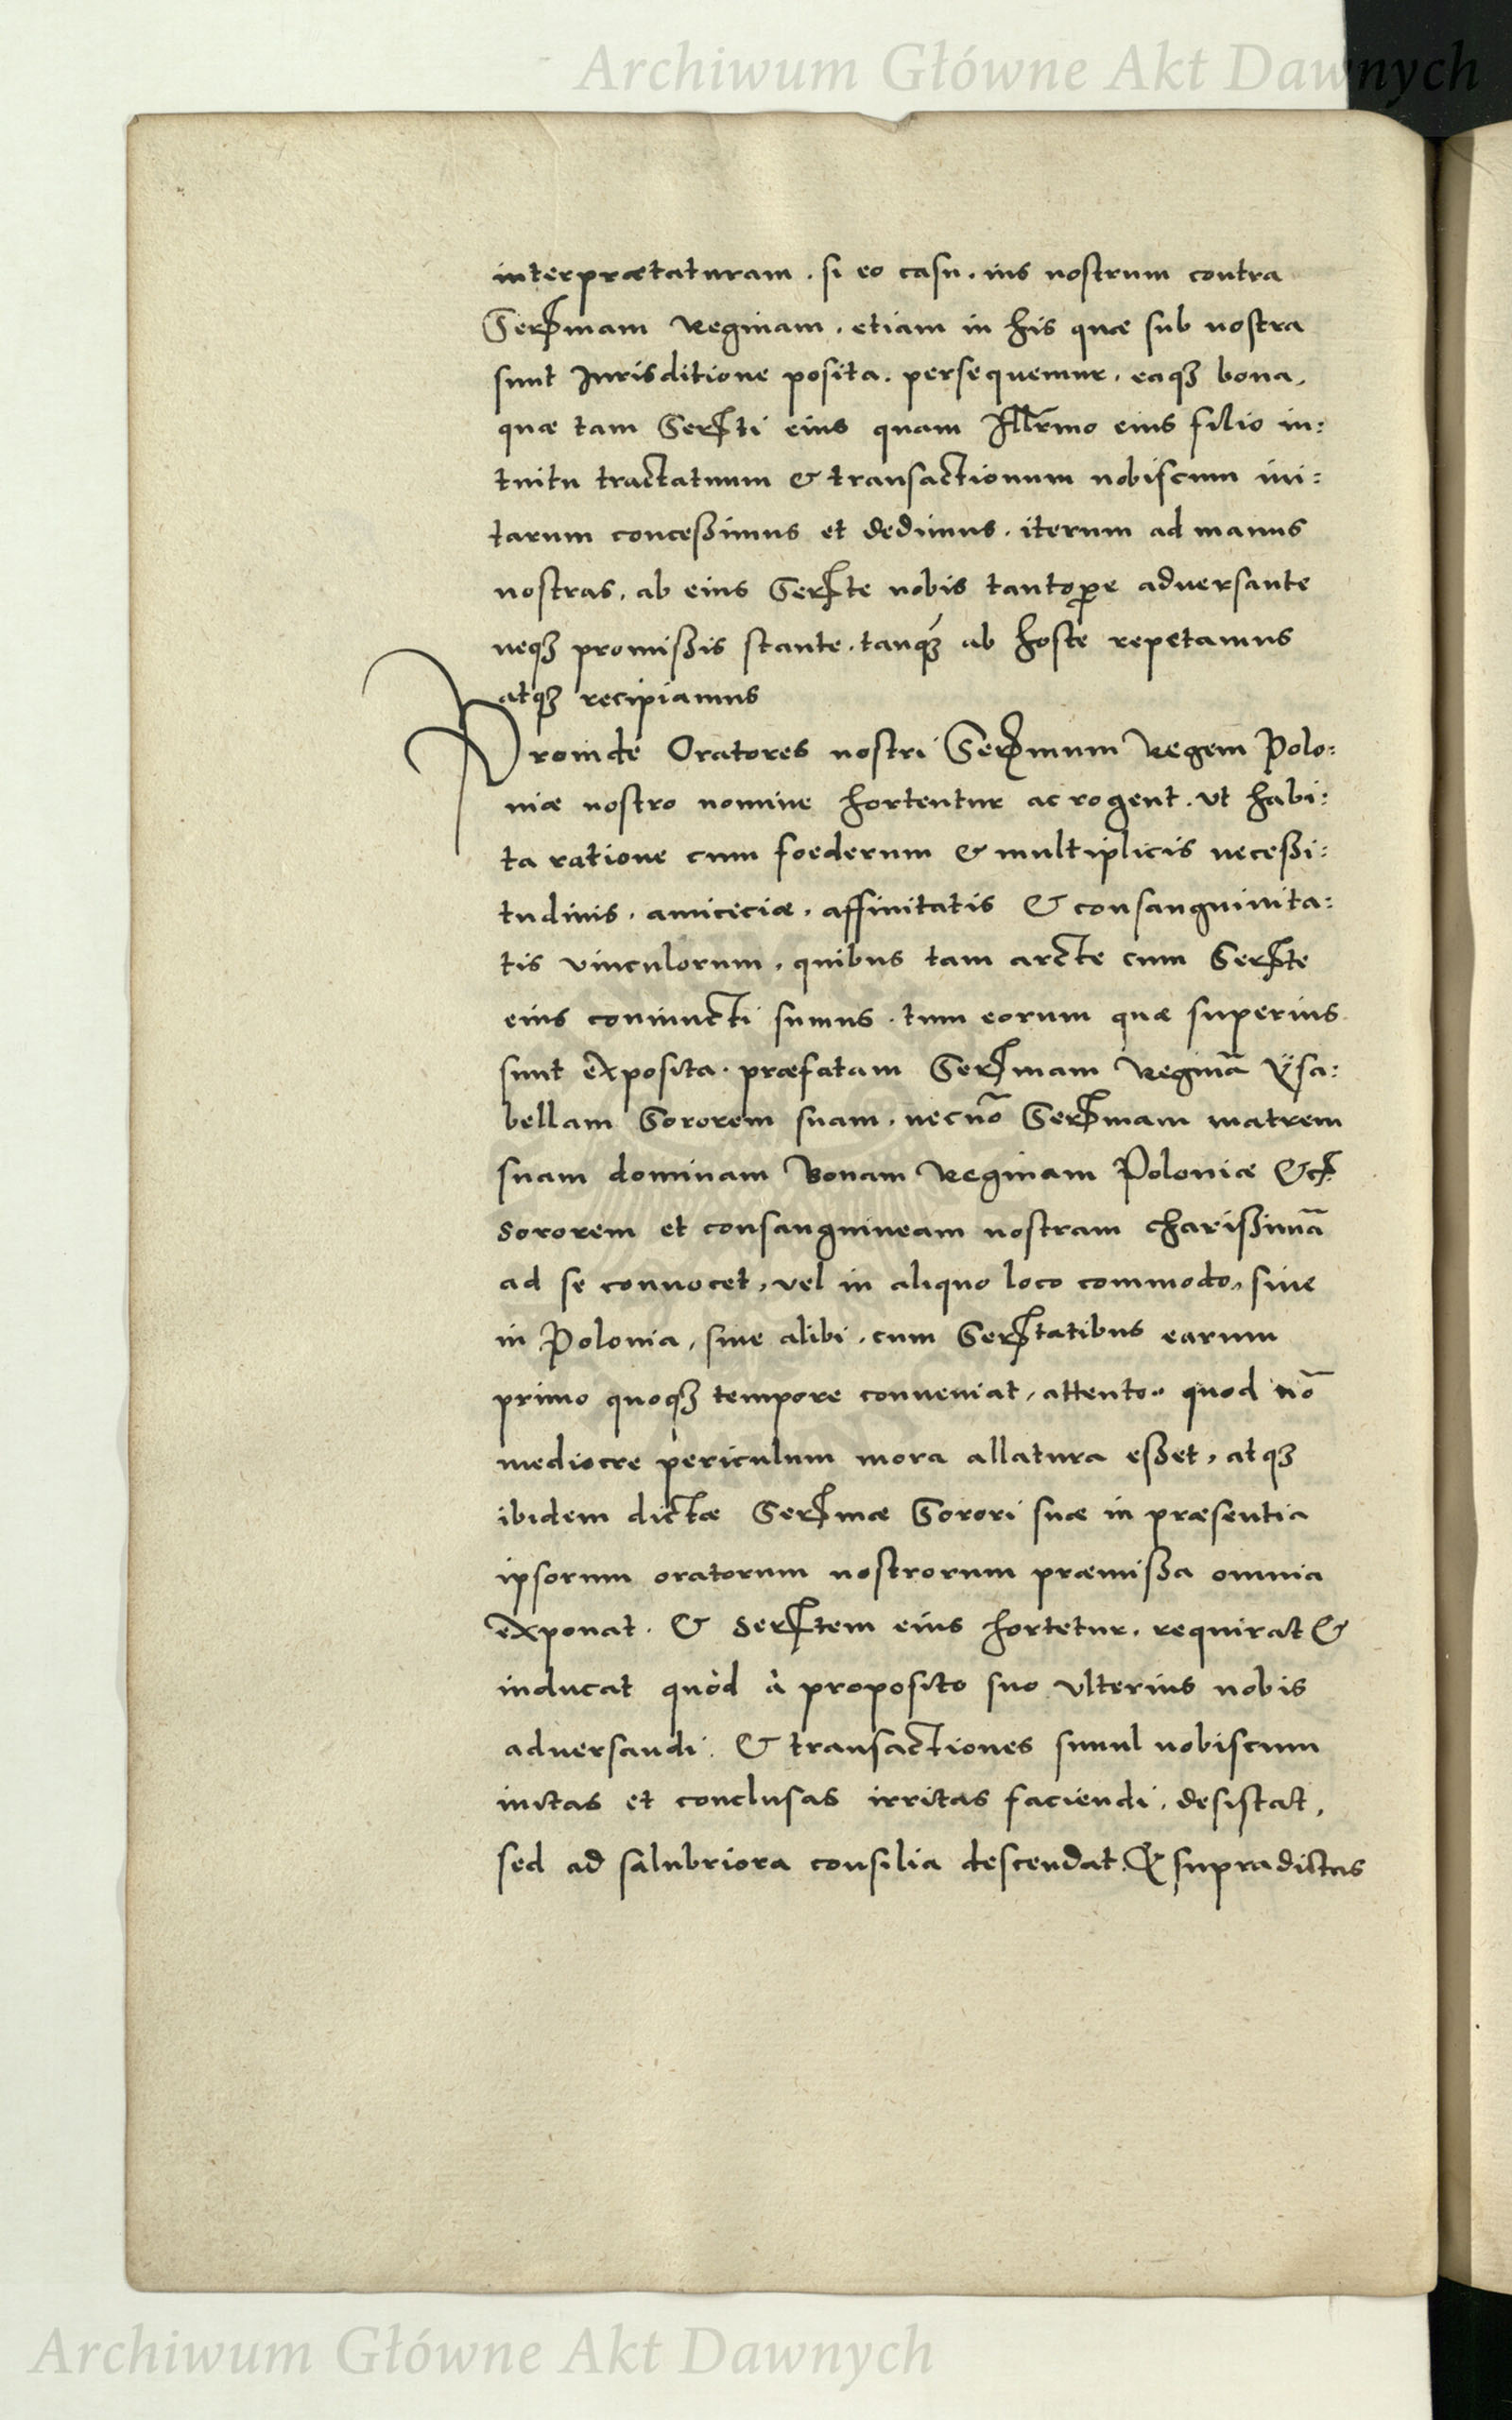 Archiwum Główne Akt Dawnych
interpraetaturam. si eo casu. ius nostrum contra
Sermam Reginam. etiam in his quae sub nostra
sunt Jurisditione posita. persequemur. eaq3 bona,
quae tam Serti eius quam Illrmo eius filio in:
tuitu tractatuum & transactionum nobiscum ini:
tarum conceßimus et dedimus. iterum ad manus
nostras, ab eius Serte nobis tantoꝑe aduersante
neq3 promißis stante. tanq3 ab hoste repetamus
atq3 recipiamus
Proinde Oratores nostri Sermum Regem Polo:
niae nostro nomine hortentur ac rogent. vt habi:
ta ratione cum foederum & multiplicis neceßi:
tudinis. amiciciae, affinitatis & consanguinita:
tis vinculorum, quibus tam arcte cum Serte
eius coniuncti sumus. tum eorum quae superius
sunt exposita. praefatam Sermam Reginā Ysa:
bellam Sororem suam, necnō Sermam matrem
suam dominam Bonam Reginam Poloniae &c
Sororem et consanguineam nostram charißimā
ad se conuocet, vel in aliquo loco commodo, siue
in Polonia, siue alibi, cum Sertatibus earum
primo quoq3 tempore conueniat, attento quod nō
mediocre periculum mora allatura eßet, atq3
ibidem dictae Sermae Sorori suae in praesentia
ipsorum oratorum nostrorum praemißa omnia
exponat. & Sertem eius hortetur. requirat &
inducat quòd à proposito suo vlterius nobis
aduersandi. & transactiones simul nobiscum
initas et conclusas irritas faciendi, desistat,
sed ad salubriora consilia descendat. & supradictas
Archiwum Główne Akt Dawnych